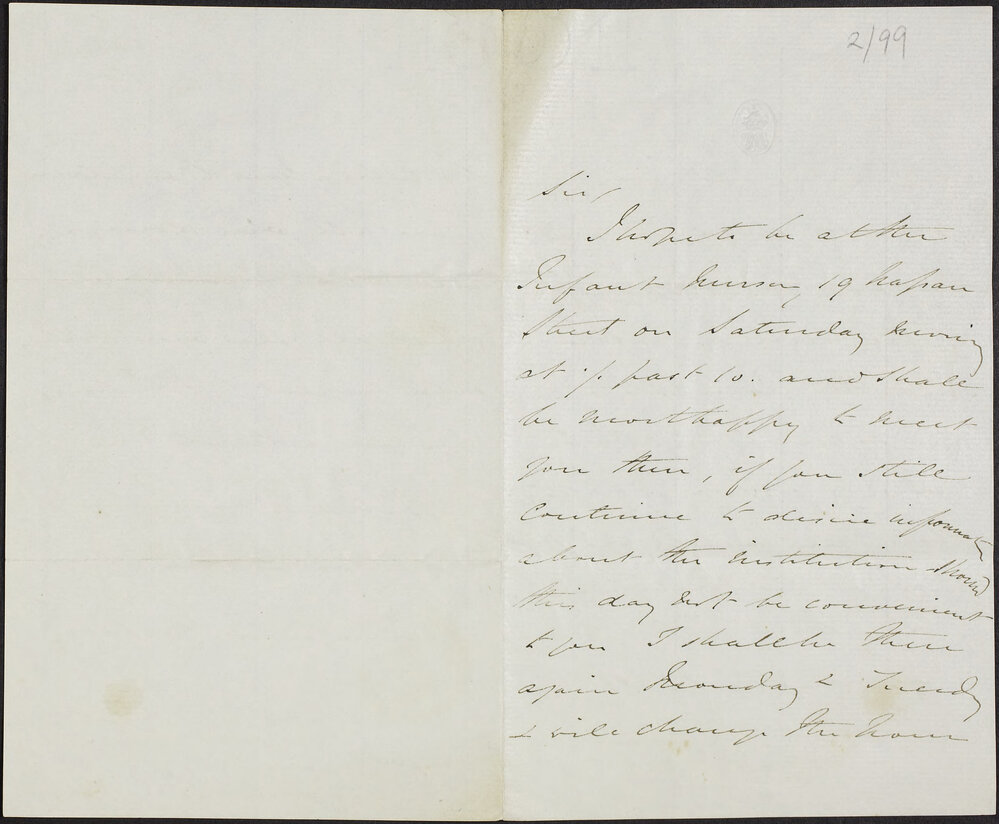 2/99
Sir,
I hope to be at the
Infant Nursery 19 Nassau
Street on Saturday morning
at ½ past 10. and shall
be most happy to meet
you then, if you still
continue to desire information
about the institution should
this day not be convenient
to you I shall be there
again Monday & Tuesday
& will change the hour